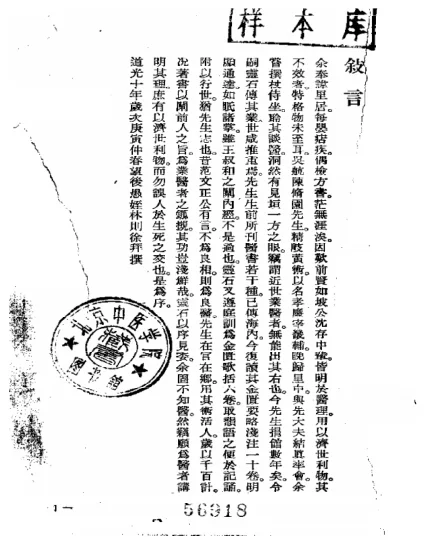 样本库
敍言
余奉諱里居。每嬰痁疾。偶檢方書。茫無涯涘。因歎前賢如坡公沈存中輩皆明於醫理。用以濟世利物。其
不效者。特格物未至耳。吳航陳脩園先生。精岐黃術。以名孝廉宰畿輔。晚歸里中。與先大夫結眞率會。余
嘗撰杖侍坐。聆其談醫。洞然有見垣一方之眼。竊謂近世業醫者。無能出其右也。今先生捐館數年矣。令
嗣靈石傳其業。世咸推重焉。先生生前所刊醫書若干種。已傳海內。今復讀其金匱要略淺注一十卷。明
顯通達。如眂諸掌。雖王叔和之闡內經。不是過也。靈石又遵庭訓。爲金匱歌括六卷。取韻語之便於記誦。
附以行世。猶先生志也。昔范文正公有言。不爲良相。則爲良醫。先生在官在鄉。用其術活人。歲以千百計。
況著書以闡前人之旨。爲業醫者之鎞撥。其功豈淺鮮哉。靈石以序見委。余固不知醫。然竊願爲醫者講
明其理。庶有以濟世利物。而勿誤人於生死之交也。是爲序。
道光十年歲次庚寅仲春望後愚姪林則徐拜撰
北京中医学院
图书馆
1
56918